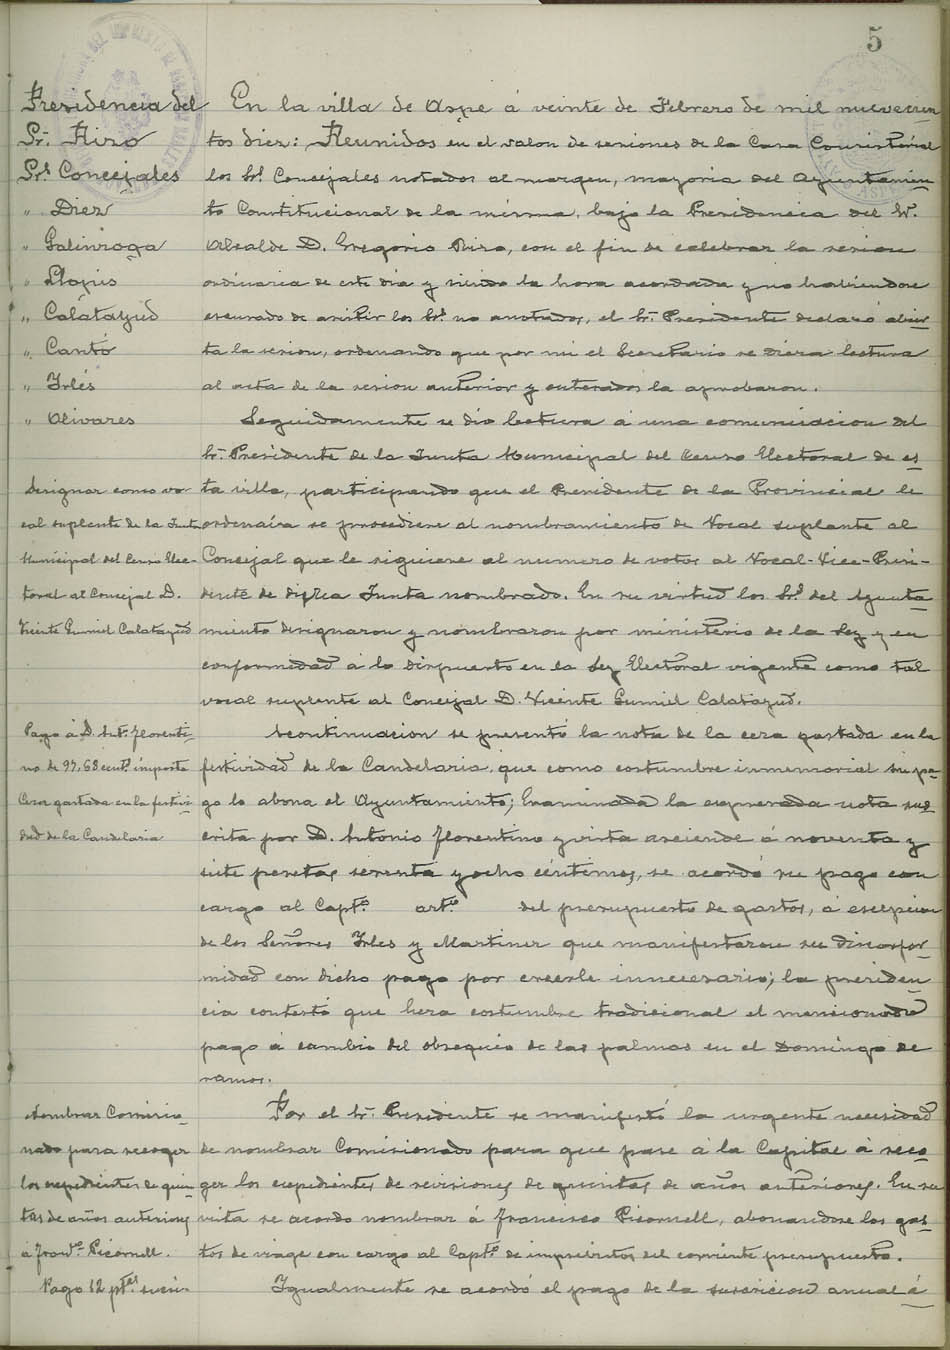 5
Presidencia del
Sr. Pizo
Srs. Concejales
" Diez
" Galinsoga
" Llopis
" Calatayud
" Cantó
" Irlés
" Olivares
En la villa de Aspe á veinte de Febrero de mil nuevecien
tos diez: Reunidos en el salon de sesiones de la Casa Consistorial
los Srs. Concejales notados al margen, mayoria del Ayuntamien-
to Constitucional de la misma, bajo la Presidencia del Sr.
Alcalde D. Gregorio Pizo, con el fin de celebrar la sesion
ordinaria de este dia y siendo la hora acordada y no habiendose
escusado de asistir los Srs. no anotados, el Sr. Presidente declaró abier-
ta la sesion, ordenando que por mi el Secretario se diera lectura
al acta de la sesion anterior y enterados la aprobaron.
Seguidamente se dio lectura á una comunicacion del
Sr. Presidente de la Junta Municipal del Censo Electoral de es-
ta villa, participando que el Presidente de la Provincial le
ordenaira se procediese al nombramiento de Vocal suplante al
Concejal que le siguiese al numero de votos al Vocal-Vice-Presi-
dente de dicha Junta nombrado. En su virtud los Srs. del Ayunta-
miento designaron y nombraron por ministerio de la Ley y en
conformidad á lo dispuesto en la Ley Electoral vigente como tal
vocal suplente al Concejal D. Vicente Gumiel Calatayud.
Designar como vo-
cal suplente de la Junta
Municipal del Censo Elec-
toral al Concejal D.
Vicente Gumiel Calatayud
Acontinuacion se presentó la nota de la cera gastada en la
festividad de la Candelaria, que como costumbre inmemorial su pa-
go lo abona el Ayuntamiento; Examinada la expresada nota sus-
crita por D. Antonio Florentino y vista asciende á noventa y
siete pesetas sesenta y ocho céntimos, se acordó su pago con
cargo al Capto. arto. del presupuesto de gastos, á escepcion
de los Señores Irles y Martinez que manifestaron su disconfor-
midad con dicho pago por creerle innecesario; la presiden-
cia contestó que hera costumbre tradicional el mencionado
pago á cambio del obsequio de las palmas en el Domingo de
ramos.
Pago á D. Anto. Florenti-
no de 97,68 cents. importe
Cera gastada en la festivi-
dad de la Candelaria
Por el Sr. Presidente se manifestó la urgente necesidad
de nombrar Comisionado para que pase á la Capital á reco-
ger los expedientes de revisiones de quintas de años anteriores. En su
vista se acordo nombrar á Francisco Picornell, abonandose los gas-
tos de viage con cargo al Capto. de imprevistos del corriente presupuesto.
Nombrar Comisio-
nado para recoger
los expedientes de quin-
tas de años anteriores
á Franco. Picornell.
Igualmente se acordó el pago de la suscricion anual á
Pago 12 ptas. suscri-